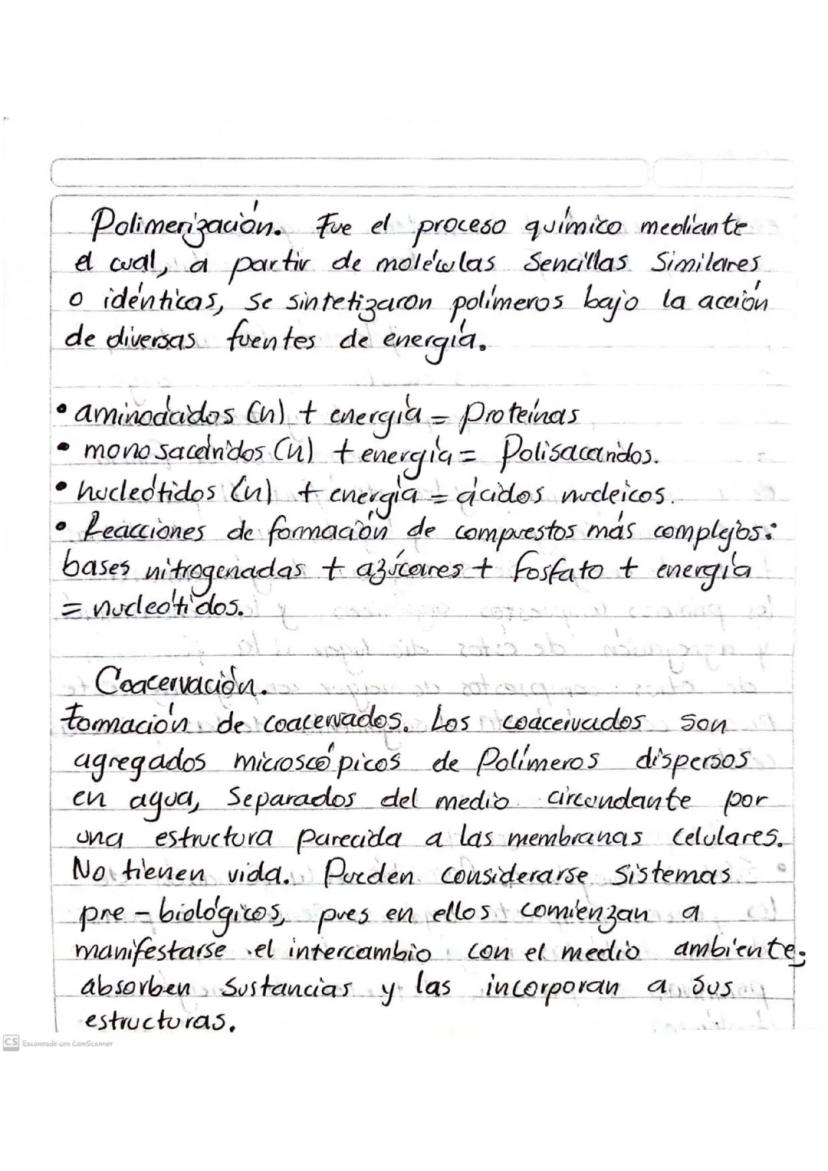 Polimerización. Fue el proceso químico mediante
el cual, a partir de moléculas sencillas similares
o idénticas, se sintetizaron polímeros bajo la acción
de diversas fuentes de energía.
• aminoácidos (n) + energía = proteínas
• monosacáridos (n) + energía = Polisacáridos.
• nucleótidos (n) + energía = ácidos nucleicos.
• Reacciones de formación de compuestos más complejos:
bases nitrogenadas + azúcares + fosfato + energía
= nucleótidos.
Coacervación.
Formación de coacervados. Los coacervados son
agregados microscópicos de Polímeros dispersos
en agua, separados del medio circundante por
una estructura parecida a las membranas celulares.
No tienen vida. Pueden considerarse sistemas
pre-biológicos, pues en ellos comienzan a
manifestarse el intercambio con el medio ambiente;
absorben sustancias y las incorporan a sus
estructuras.
CS Escaneado con CamScanner